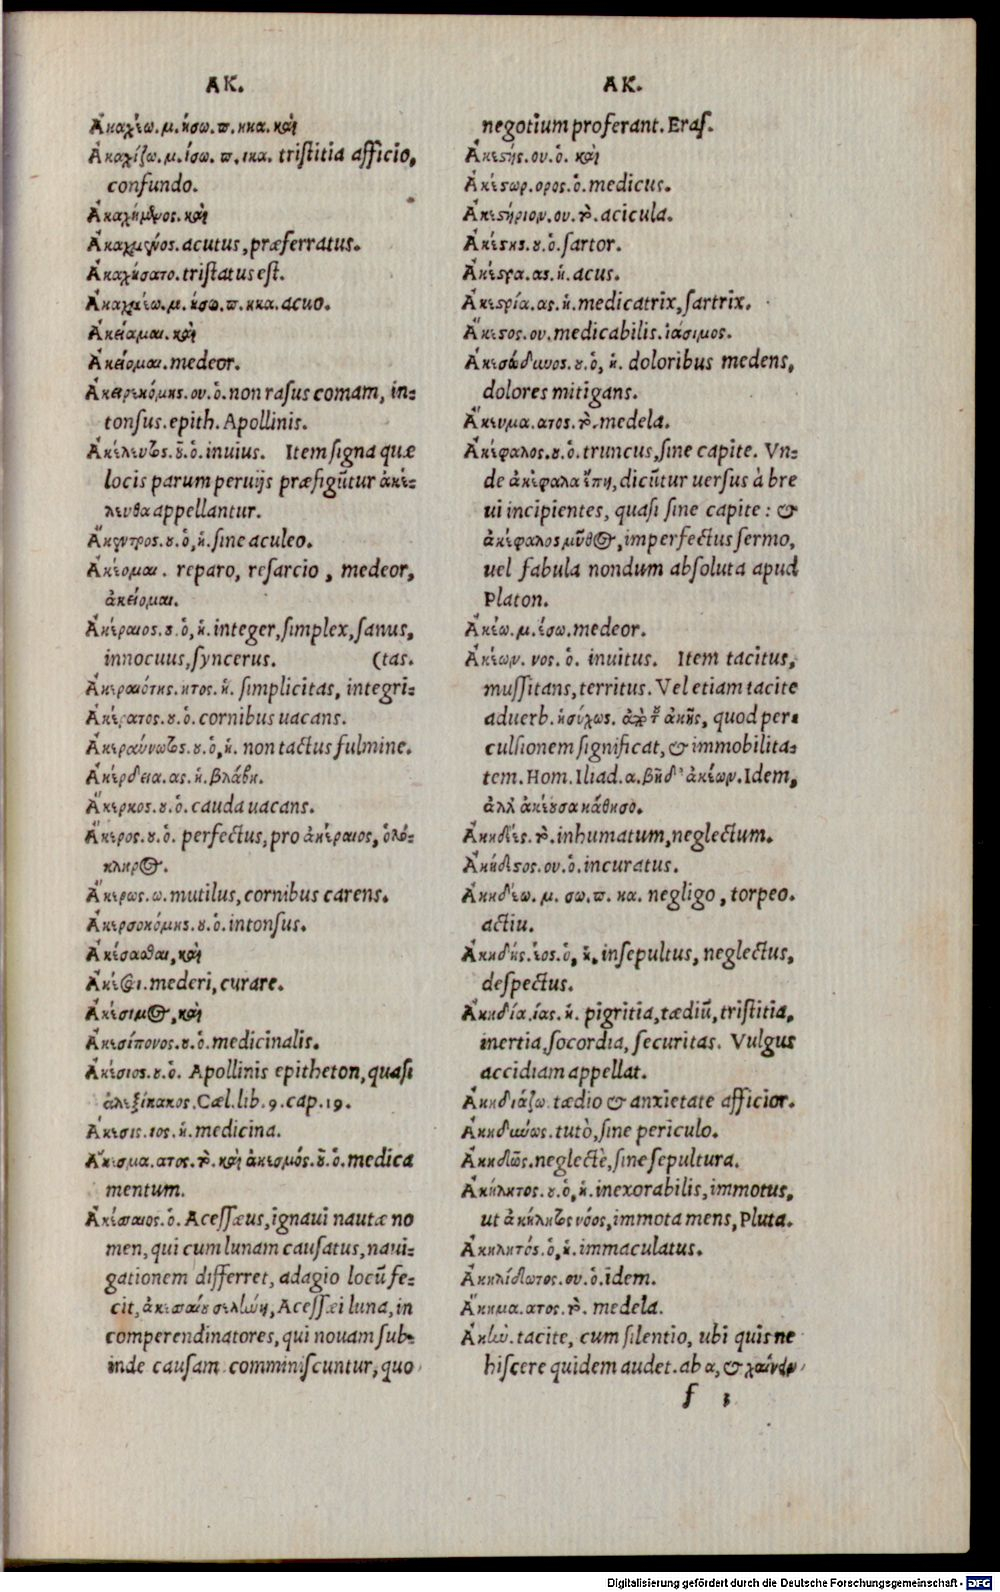 ΑΚ.
Ἀκαχέω.μ.ήσω.π.ηκα.καὶ
Ἀκαχίζω.μ.ίσω.π.ικα. tristitia afficio,
confundo.
Ἀκαχήμενος.καὶ
Ἀκαχμένος.acutus, præferratus.
Ἀκαχήσατο.tristatus est.
Ἀκαχμέω.μ.ήσω.π.ηκα.acuo.
Ἀκείαμαι.καὶ
Ἀκείομαι.medeor.
Ἀκειρεκόμης.ου.ὁ.non rasus comam, in-
tonsus.epith. Apollinis.
Ἀκέλευθος.ου.ὁ.inuius. Item signa quæ
locis parum peruijs præfigūtur ἀκέ-
λευθα appellantur.
Ἄκεντρος.ου.ὁ,ἡ.sine aculeo.
Ἀκέομαι. reparo, resarcio, medeor,
ἀκείομαι.
Ἀκέραιος.ου.ὁ,ἡ.integer,simplex,sanus,
innocuus,syncerus. (tas.
Ἀκεραιότης.ητος.ἡ. simplicitas, integri-
Ἀκέρατος.ου.ὁ.cornibus uacans.
Ἀκεραύνωτος.ου.ὁ,ἡ.non tactus fulmine.
Ἀκέρδεια.ας.ἡ.βλάβη.
Ἄκερκος.ου.ὁ.cauda uacans.
Ἄκερος.ου.ὁ. perfectus,pro ἀκέραιος, ὁλό-
κληρος.
Ἄκερως.ω.mutilus,cornibus carens.
Ἀκερσοκόμης.ου.ὁ.intonsus.
Ἀκέσασθαι,καὶ
Ἀκέσθαι.mederi,curare.
Ἀκέσιμος,καὶ
Ἀκεσίπονος.ου.ὁ.medicinalis.
Ἀκέσιος.ου.ὁ. Apollinis epitheton,quasi
ἀλεξίκακος.Cæl.lib.9.cap.19.
Ἄκεσις.ιος.ἡ.medicina.
Ἄκεσμα.ατος.τὸ.καὶ ἀκεσμός.οῦ.ὁ.medica
mentum.
Ἀκέσαιος.ὁ. Acessæus,ignaui nautæ no
men,qui cum lunam causatus,naui-
gationem differret, adagio locū fe-
cit, ἀκεσαίου σελήνη,Acessæi luna,in
comperendinatores,qui nouam sub-
inde causam comminiscuntur,quo
ΑΚ.
negotium proferant.Eras.
Ἀκεστής.ου.ὁ. καὶ
Ἀκέστωρ.ορος.ὁ.medicus.
Ἀκεστήριον.ου.τὸ.acicula.
Ἀκέστης.ου.ὁ.sartor.
Ἀκέστρα.ας.ἡ.acus.
Ἀκεστρία.ας.ἡ.medicatrix,sartrix.
Ἄκεστος.ου.medicabilis.ἰάσιμος.
Ἀκεσώδυνος.ου.ὁ, ἡ. doloribus medens,
dolores mitigans.
Ἄκευμα.ατος.τὸ.medela.
Ἀκέφαλος.ου.ὁ.truncus,sine capite. Vn-
de ἀκέφαλα ἔπη,dicūtur uersus à bre
ui incipientes, quasi sine capite: &
ἀκέφαλος μῦθος,imperfectus sermo,
uel fabula nondum absoluta apud
Platon.
Ἀκέω.μ.έσω.medeor.
Ἀκέων. νος. ὁ. inuitus. Item tacitus,
mussitans,territus. Vel etiam tacite
aduerb.ἡσύχως. ἀπὸ τοῦ ἀκῆς, quod per-
culsionem significat, & immobilita-
tem.Hom.Iliad.α.βῆ δ' ἀκέων.Idem,
ἀλλ ἀκέουσα κάθησο.
Ἀκηδές.τὸ.inhumatum,neglectum.
Ἀκήδεστος.ου.ὁ.incuratus.
Ἀκηδέω. μ. σω.π. κα. negligo, torpeo.
actiu.
Ἀκηδής.έος.ὁ, ἡ.insepultus, neglectus,
despectus.
Ἀκηδία.ίας.ἡ. pigritia,tædiū,tristitia,
inertia,socordia,securitas. Vulgus
accidiam appellat.
Ἀκηδιάζω.tædio & anxietate afficior.
Ἀκηδύνως.tutò,sine periculo.
Ἀκηδῶς.neglectè,sine sepultura.
Ἀκήλητος.ου.ὁ,ἡ.inexorabilis,immotus,
ut ἀκήλητος νόος,immota mens,Pluta.
Ἀκηλητός.ὁ,ἡ.immaculatus.
Ἀκηλίδωτος.ου.ὁ.idem.
Ἄκημα.ατος.τὸ. medela.
Ἀκὴν.tacite, cum silentio, ubi quis ne
hiscere quidem audet.ab α, & χαίνειν
f 3
Digitalisierung gefördert durch die Deutsche Forschungsgemeinschaft - DFG